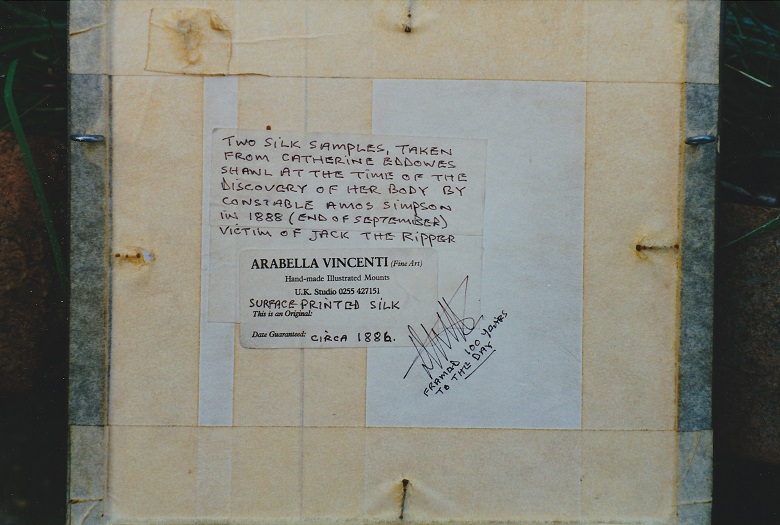 TWO SILK SAMPLES, TAKEN
FROM CATHERINE EDDOWES
SHAWL AT THE TIME OF THE
DISCOVERY OF HER BODY BY
CONSTABLE AMOS SIMPSON
IN 1888 (END OF SEPTEMBER)
VICTIM OF JACK THE RIPPER
ARABELLA VINCENTI (Fine Art)
Hand-made Illustrated Mounts
U.K. Studio 0255 427151
SURFACE PRINTED SILK
This is an Original:
Date Guaranteed: CIRCA 1886.
FRAMED 100 YEARS
TO THE DAY